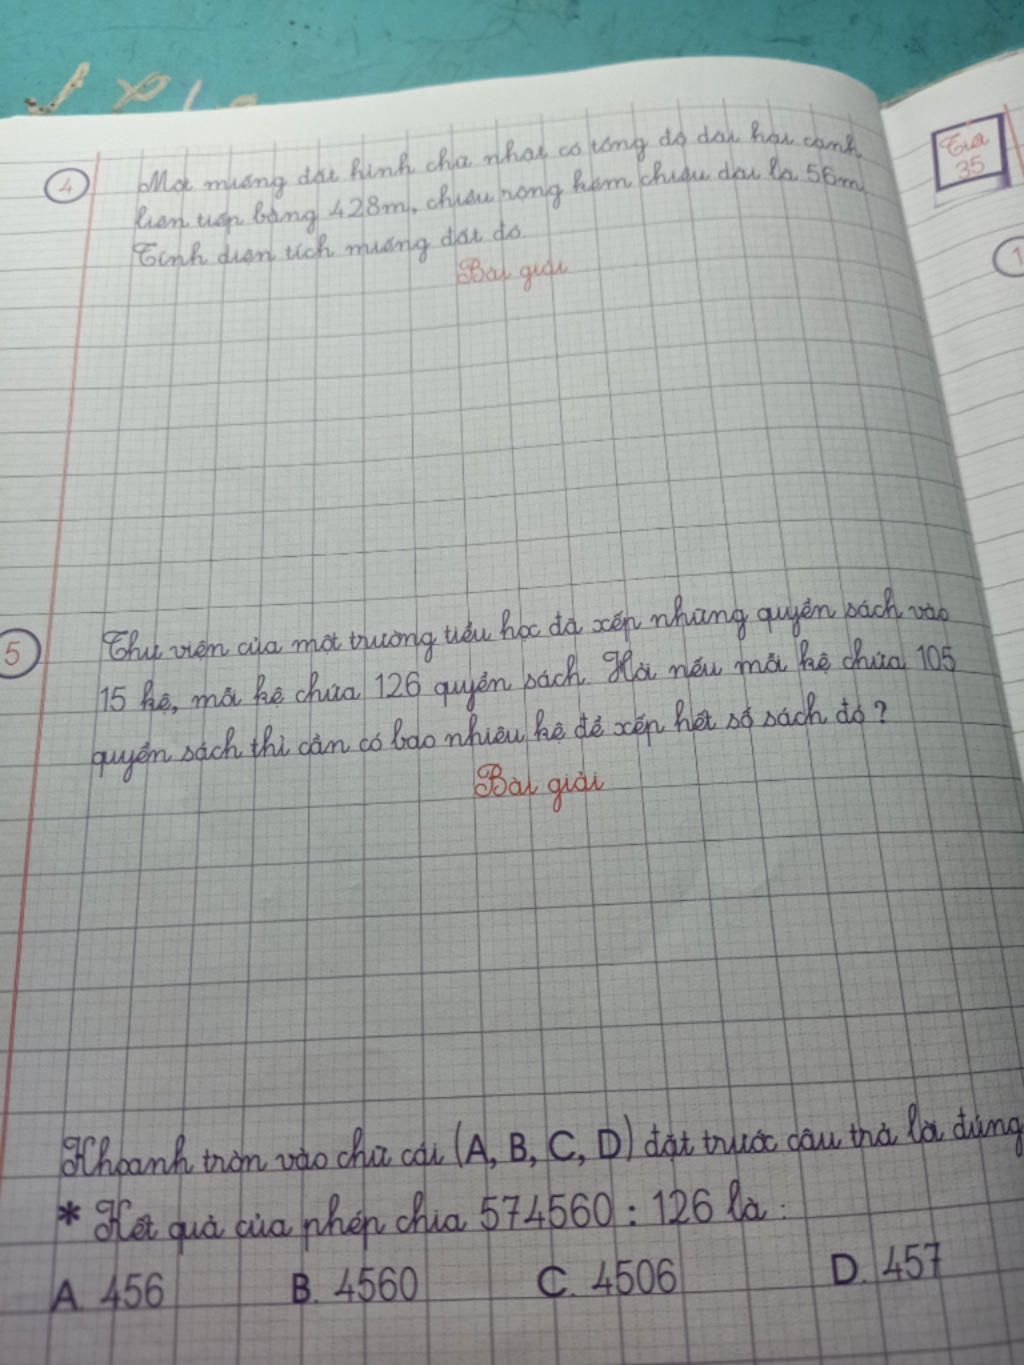 4
Một miếng đất hình chữ nhật có tổng độ dài hai cạnh
liên tiếp bằng 428m, chiều rộng kém chiều dài là 56m.
Tính diện tích miếng đất đó.
Bài giải
Tiết
35
1
5
Thư viện của một trường tiểu học đã xếp những quyển sách vào
15 kệ, mỗi kệ chứa 126 quyển sách. Hỏi nếu mỗi kệ chứa 105
quyển sách thì cần có bao nhiêu kệ để xếp hết số sách đó?
Bài giải
Khoanh tròn vào chữ cái (A, B, C, D) đặt trước câu trả lời đúng
* Kết quả của phép chia 574560 : 126 là :
A. 456 B. 4560 C. 4506 D. 457